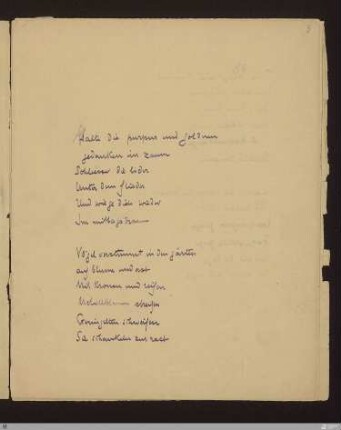 Halte die purpurn und goldnen
gedanken im zaum
Schliesse die lider
Unter dem flieder
Und wiege dich wieder
Im mittagstraum
Vögel verstummt in den gärten
auf blume und ast
Mit kronen und reifen
Metallenen streifen
Geringelten schweifen
Sie schaukeln zur rast